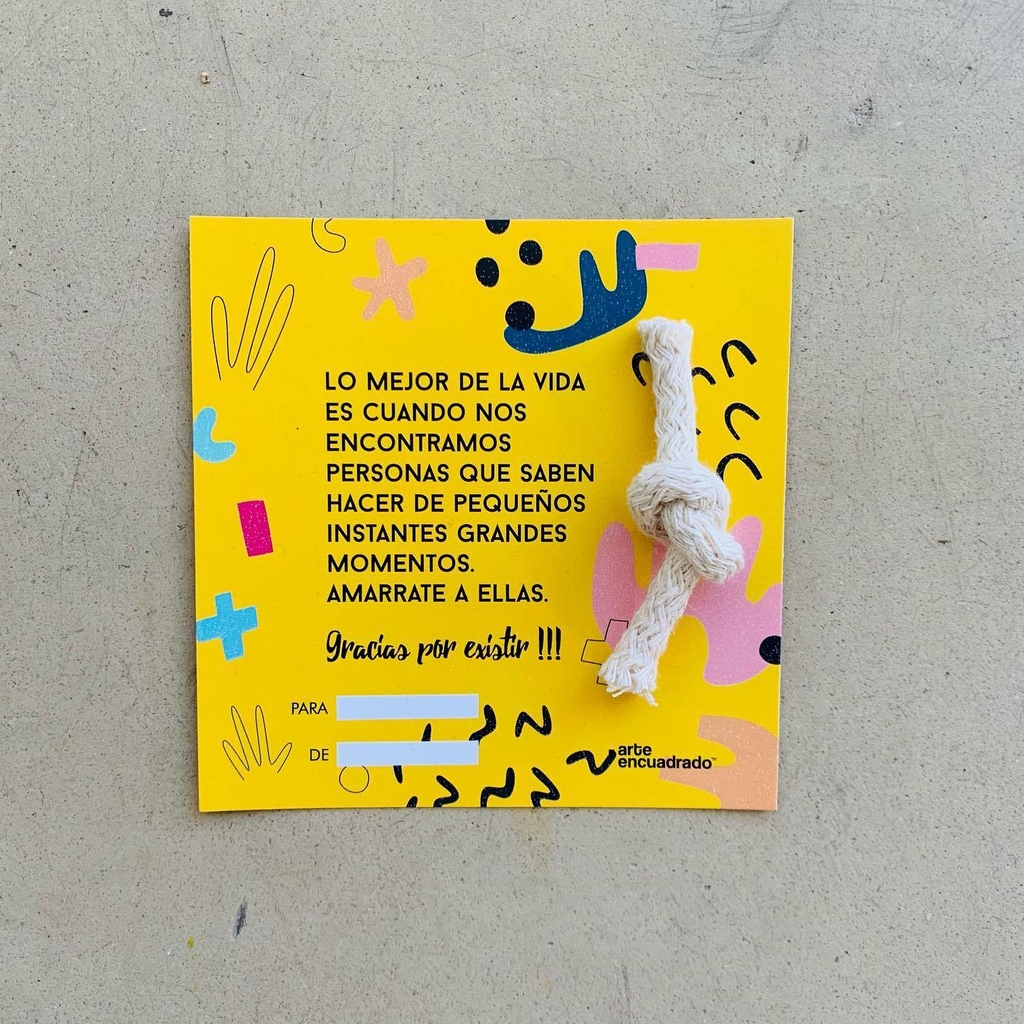 LO MEJOR DE LA VIDA
ES CUANDO NOS
ENCONTRAMOS
PERSONAS QUE SABEN
HACER DE PEQUEÑOS
INSTANTES GRANDES
MOMENTOS.
AMARRATE A ELLAS.
Gracias por existir !!!
PARA
DE
arte
encuadrado™